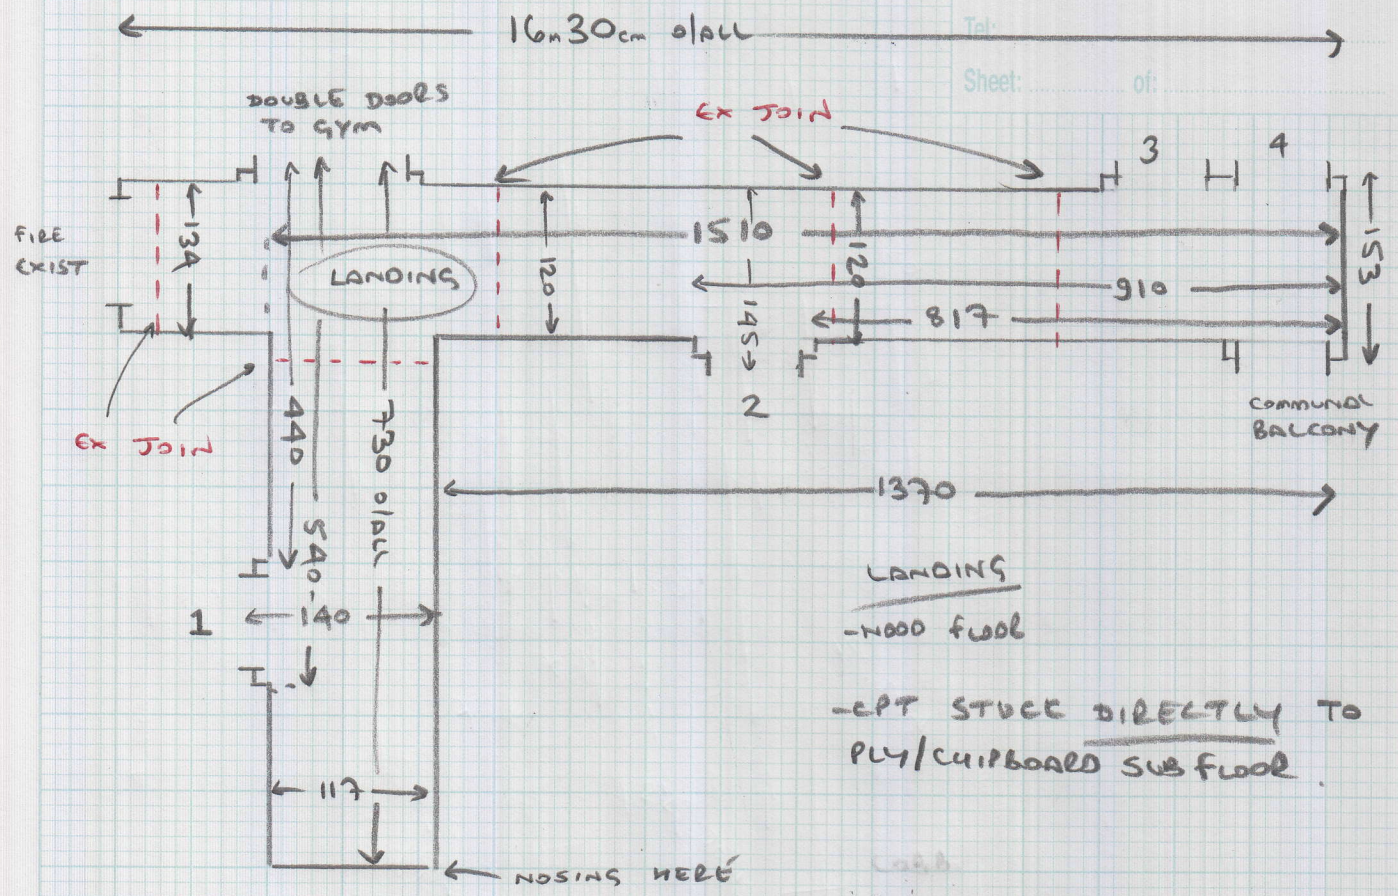 16m30cm o/ALL
Tel:
Sheet: of:
DOUBLE DOORS
TO GYM
EX JOIN
3
4
FIRE
EXIST
134
LANDING
120
1510
145
120
910
817
153
2
COMMUNAL
BALCONY
EX JOIN
440
540
730 o/ALL
1370
1
140
LANDING
-WOOD FLOOR
-CPT STUCK DIRECTLY TO
PLY/CHIPBOARD SUBFLOOR.
117
NOSING HERE